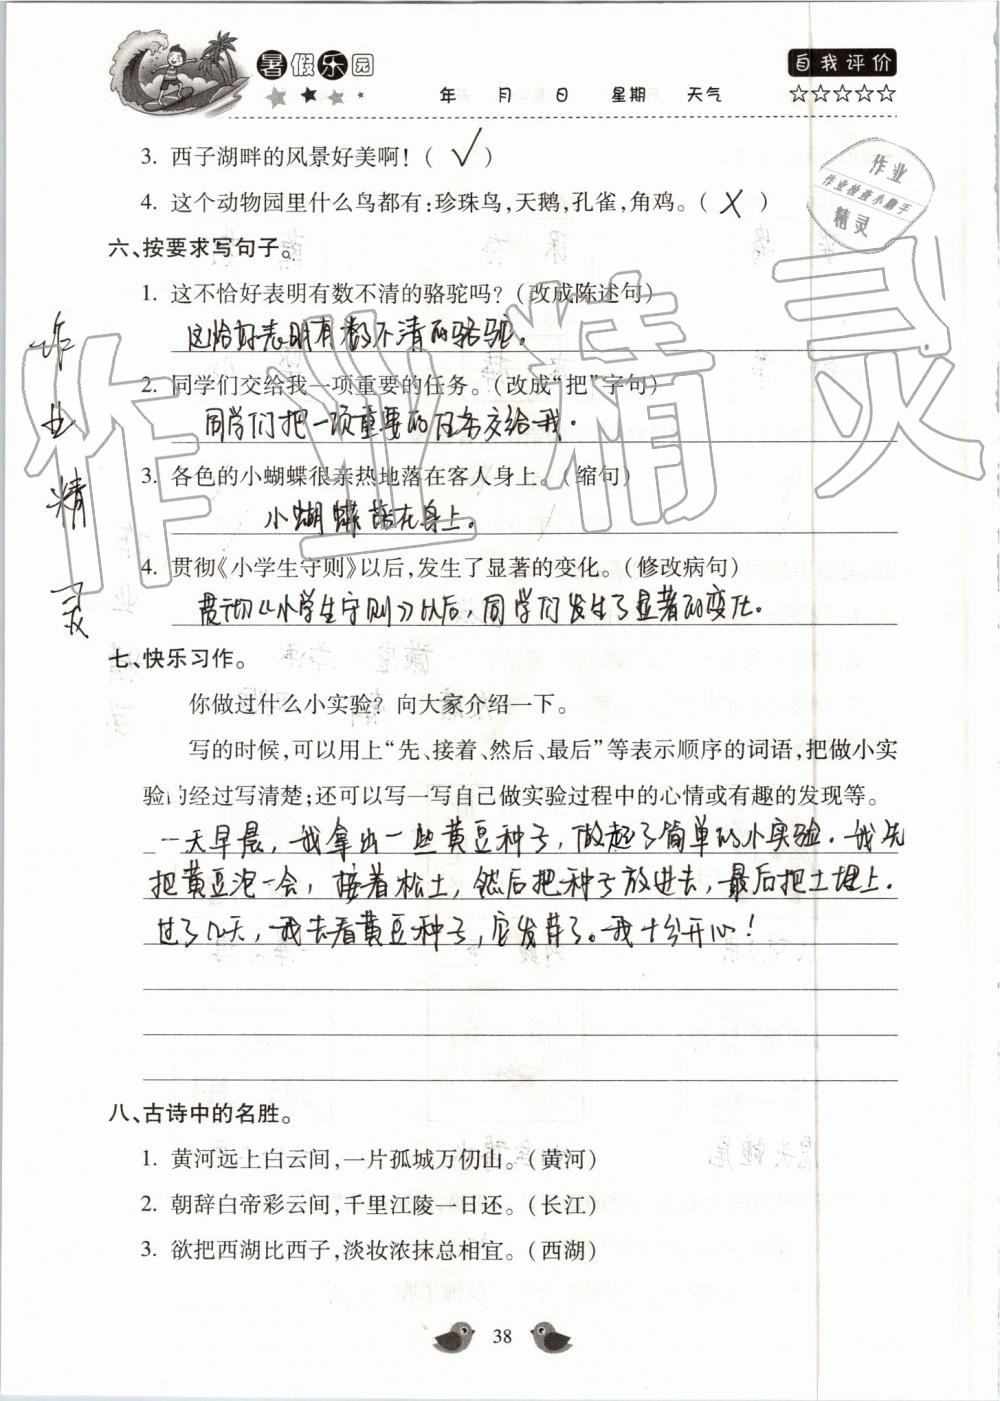 暑假乐园
自我评价
年 月 日 星期 天气 ☆☆☆☆☆
3. 西子湖畔的风景好美啊!( √ )
4. 这个动物园里什么鸟都有:珍珠鸟,天鹅,孔雀,角鸡。( X )
作业
作业检查小助手
精灵
六、按要求写句子。
1. 这不恰好表明有数不清的骆驼吗?(改成陈述句)
这恰好表明有数不清的骆驼。
2. 同学们交给我一项重要的任务。(改成“把”字句)
同学们把一项重要的任务交给我.
3. 各色的小蝴蝶很亲热地落在客人身上。(缩句)
小蝴蝶落在身上。
4. 贯彻《小学生守则》以后,发生了显著的变化。(修改病句)
贯彻《小学生守则》以后,同学们发生了显著的变化.
作业精灵
作业精灵
七、快乐习作。
你做过什么小实验?向大家介绍一下。
写的时候,可以用上“先、接着、然后、最后”等表示顺序的词语,把做小实
验的经过写清楚;还可以写一写自己做实验过程中的心情或有趣的发现等。
一天早晨,我拿出一些黄豆种子,做起了简单的小实验.我先
把黄豆泡一会,接着松土,然后把种子放进去,最后把土埋上.
过了几天,我去看黄豆种子,它发芽了。我十分开心!
八、古诗中的名胜。
1. 黄河远上白云间,一片孤城万仞山。(黄河)
2. 朝辞白帝彩云间,千里江陵一日还。(长江)
3. 欲把西湖比西子,淡妆浓抹总相宜。(西湖)
38